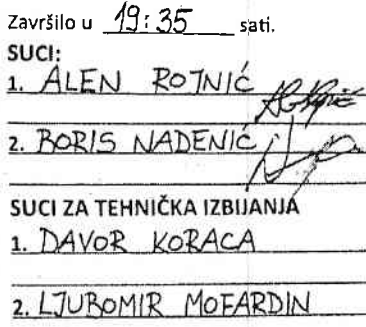 Završilo u 19:35 sati.
SUCI:
1. ALEN ROJNIĆ
2. BORIS NADENIĆ
SUCI ZA TEHNIČKA IZBIJANJA
1. DAVOR KORACA
2. LJUBOMIR MOFARDIN